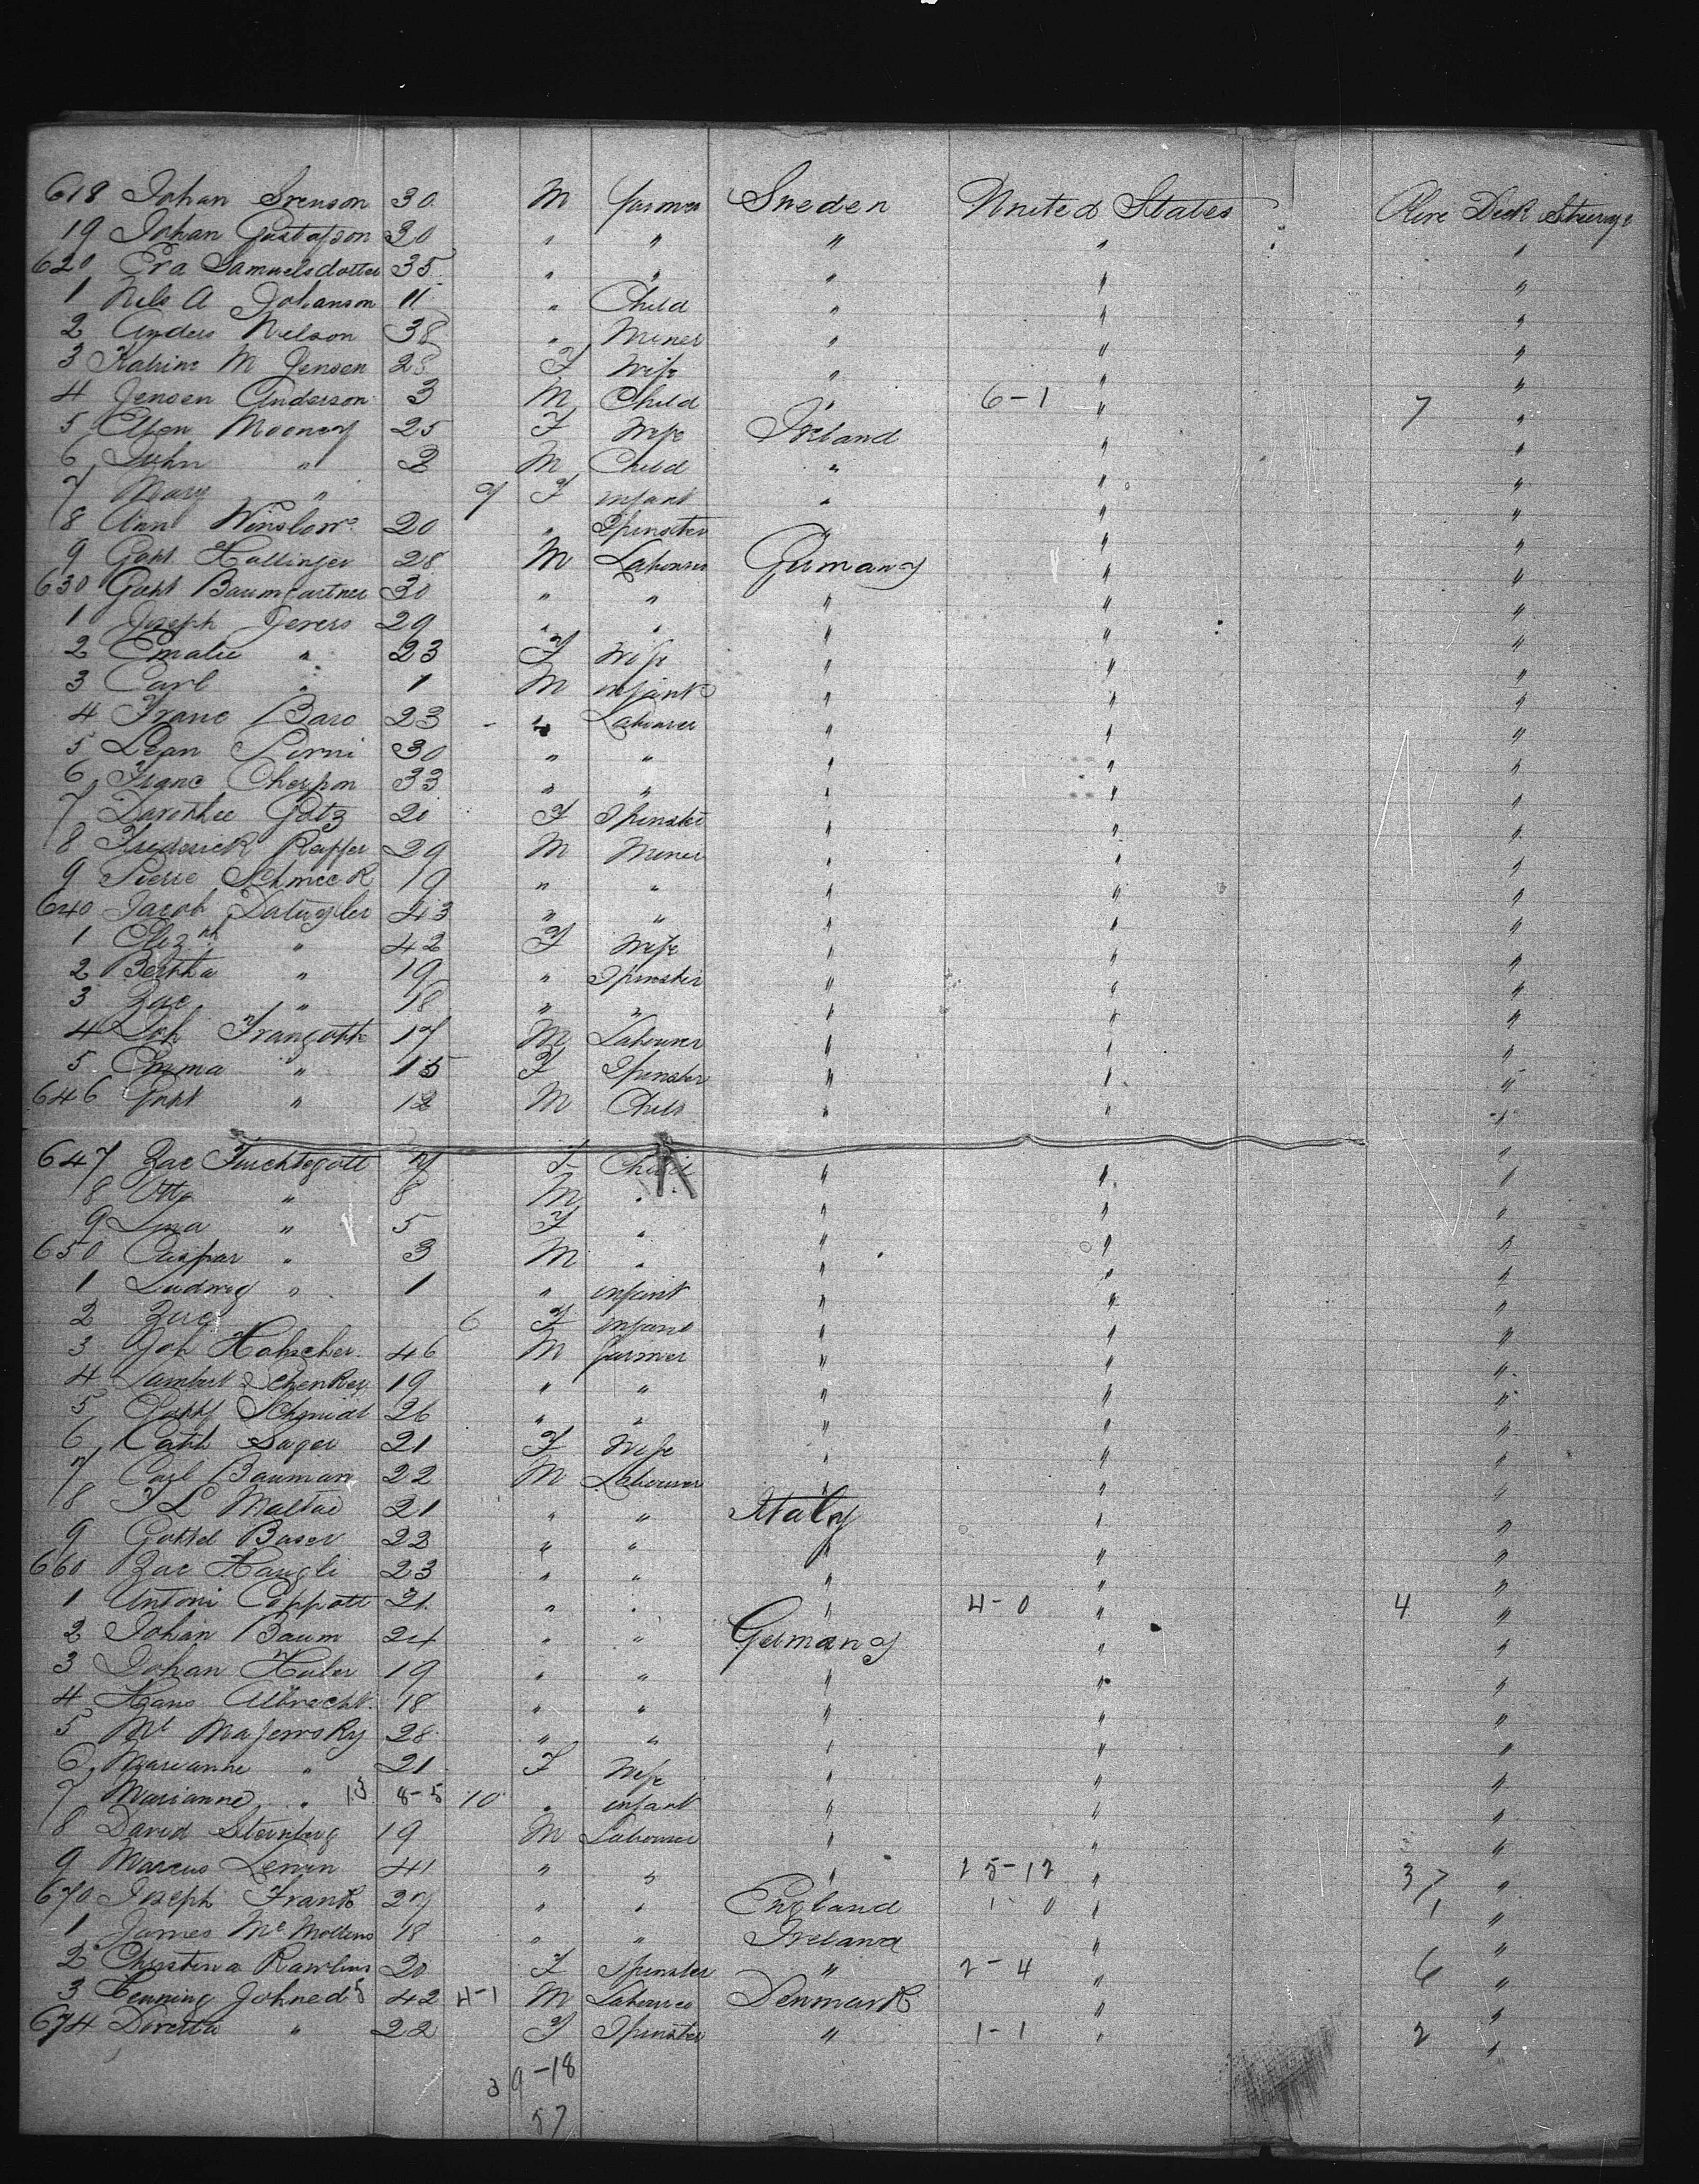 618 Johan Svenson 30 M farmer Sweden United States Deck Steerage
19 Johan Gustafson 30 " " " " "
620 Eva Samuelsdotter 35 " " " " "
1 Nels A Johanson 11 " Child " " "
2 Anders Nelson 38 " Miner " " "
3 Katrine M Jensen 28 F Wife " " "
4 Jensen Anderson 3 M Child " 6-1 " 7 "
5 Ellen Mooney 25 F Wife Ireland " "
6 John " 2 M Child " " "
7 Mary " 7 F infant " " "
8 Ann Winslow 20 " Spinster " " "
9 Gott Hollinger 28 M Labourer Germany " "
630 Gott Baumgartner 30 " " " " "
1 Joseph Jevers 29 " " " " "
2 Emalie " 23 F Wife " " "
3 Carl " 1 M infant " " "
4 Franc Baro 23 " Labourer " " "
5 Lean 30 " " " " "
6 Franc Cherpon 33 " " " " "
7 Dorothee Gotz 20 F Spinster " " "
8 Frederick Raffer 29 M Miner " " "
9 Pierre Schmeek 19 " " " " "
640 Jacob 43 " " " " "
1 Elizth " 42 F Wife " " "
2 Bertha " 19 " Spinster " " "
3 Zac " 18 " " " " "
4 Joh Frangott 17 M Labourer " " "
5 Emma " 15 F Spinster " " "
646 Gott " 12 M Child " " "
647 Zac Furchtegott 7 F Child " " "
8 Otto " 8 M " " " "
9 Lina " 5 F " " " "
650 Caspar " 3 M " " " "
1 Ludwig " 1 " infant " " "
2 Zac 6 F infant " " "
3 Joh Habscher 46 M farmer " " "
4 Lambert Schenker 19 " " " " "
5 Schmidt 26 " " " " "
6 Cath Sager 21 F Wife " " "
7 Carl Bauman 22 M Labourer " " "
8 F L Maltai 21 " " Italy " "
9 Gotted Baser 22 " " " " "
660 Zac Haugli 23 " " " " "
1 Antoni Coppott 21 " " " 4-0 " 4 "
2 Johan Baum 24 " " Germany " "
3 Johan Huler 19 " " " " "
4 Hans Albrecht 18 " " " " "
5 Mt Majewsky 28 " " " " "
6 Marianne " 21 F Wife " " "
7 Marianne " 13 8-5 10 " infant " " "
8 David Sternberg 19 M Labourer " " "
9 Marcus Lewin 41 " " " 25-12 " 37 "
670 Joseph Frank 27 " " England 1 0 " 1 "
1 James Mc Mollens 18 " " Ireland " "
2 Christina Rawlins 20 F Spinster " 2-4 " 6 "
3 Henning Johned 42 4-1 M Labourer Denmark " "
674 Doretta " 22 F Spinster " 1-1 " 2 "
39-18
57